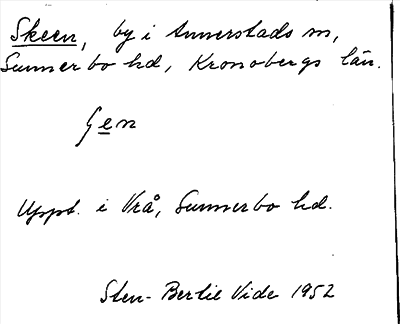 Skeen, by i Annerstads sn,
Sunnerbo hd, Kronobergs län.
Gen
Uppt. i Vrå, Sunnerbo hd.
Sten-Bertil Vide 1952